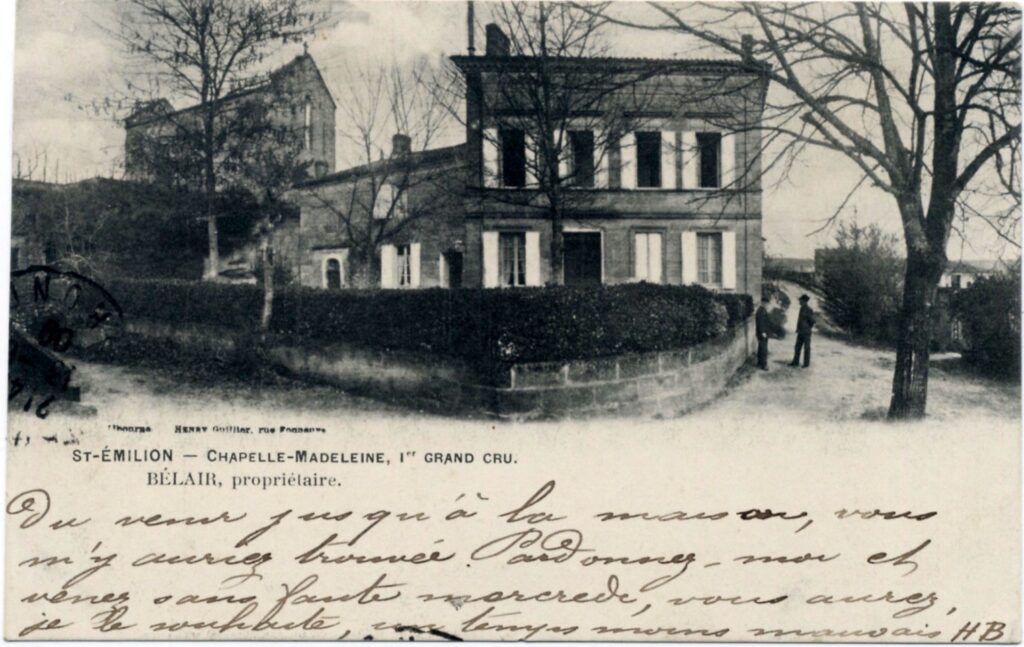 Libourne HENRY Guillier, rue Fonneuve
ST-ÉMILION — CHAPELLE-MADELEINE, 1er GRAND CRU.
BÉLAIR, propriétaire.
Du venir jusqu'à la maison, vous
m'y auriez trouvée Pardonnez-moi et
venez sans faute mercredi, vous aurez,
je le souhaite, un temps moins mauvais HB